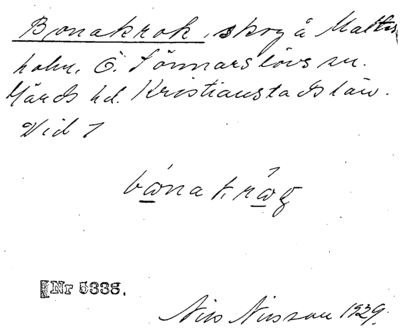 Bonakrok, skog å Matts
holm, Ö. Sönnarslövs sn.
Gärds hd. Kristianstads län.
Vid 1
bωnakrωg
Nr 5338.
Nils Nilsson 1929.